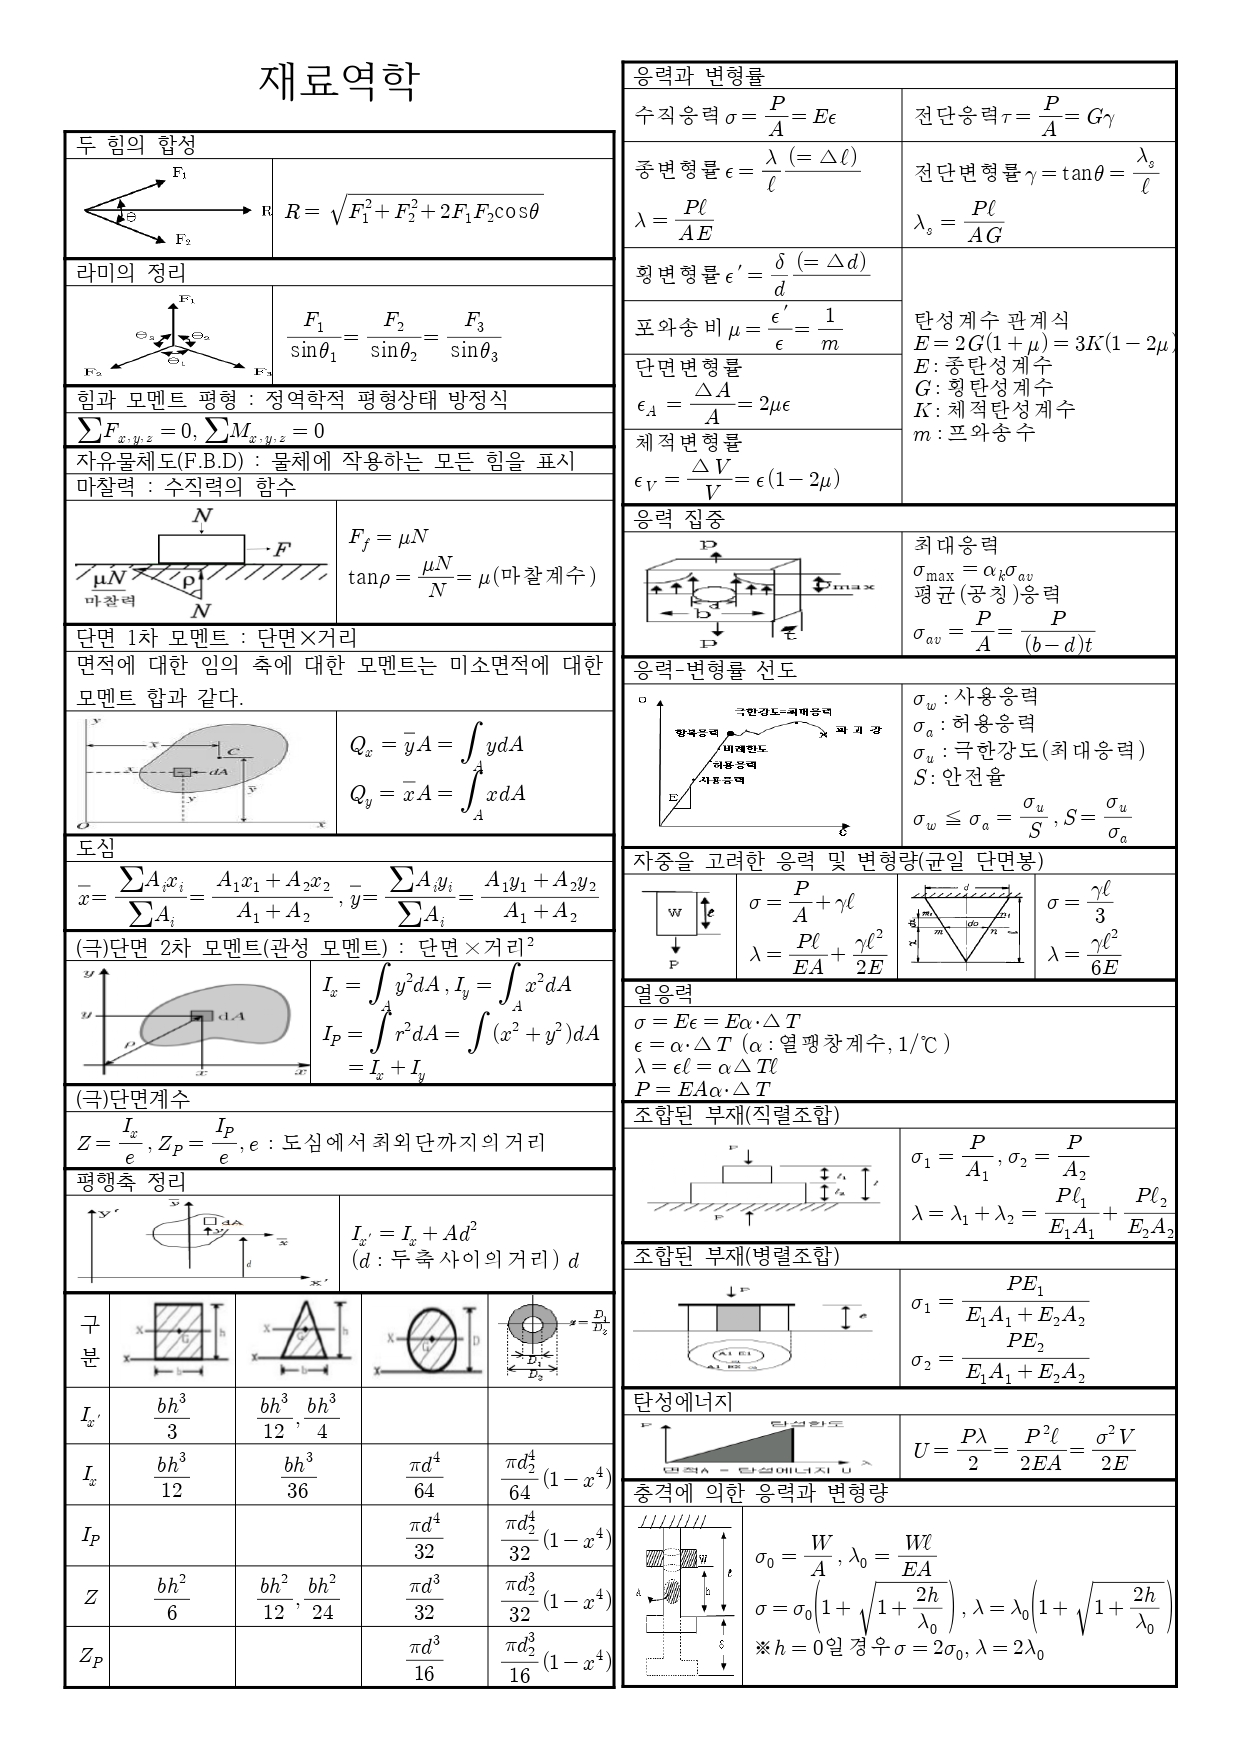 재료역학
두 힘의 합성
F₁
θ
R
F₂
R = √(F₁² + F₂² + 2F₁F₂cosθ)
라미의 정리
F₁
θ₃ θ₂
θ₁
F₂ F₃
F₁/sinθ₁ = F₂/sinθ₂ = F₃/sinθ₃
힘과 모멘트 평형 : 정역학적 평형상태 방정식
∑F_{x, y, z} = 0, ∑M_{x, y, z} = 0
자유물체도(F.B.D) : 물체에 작용하는 모든 힘을 표시
마찰력 : 수직력의 함수
N
F
μN ρ
마찰력
N
F_f = μN
tanρ = μN/N = μ(마찰계수)
단면 1차 모멘트 : 단면×거리
면적에 대한 임의 축에 대한 모멘트는 미소면적에 대한
모멘트 합과 같다.
y
x C
x dA
y ȳ
O x
Q_x = ȳA = ∫_A ydA
Q_y = x̄A = ∫_A xdA
도심
x̄ = ∑A_i x_i/∑A_i = (A₁x₁ + A₂x₂)/(A₁ + A₂) , ȳ = ∑A_i y_i/∑A_i = (A₁y₁ + A₂y₂)/(A₁ + A₂)
(극)단면 2차 모멘트(관성 모멘트) : 단면×거리²
y
y dA
ρ
x x
I_x = ∫_A y²dA , I_y = ∫_A x²dA
I_P = ∫r²dA = ∫(x² + y²)dA
= I_x + I_y
(극)단면계수
Z = I_x/e , Z_P = I_P/e , e : 도심에서 최외단까지의 거리
평행축 정리
y′ ȳ
dA
y′
x̄
d
x′
I_{x′} = I_x + Ad²
(d : 두 축 사이의 거리) d
구분
X G h
X
b
X G h
X
b
X G D
X
x = D₁/D₂
D₁
D₂
I_{x′} bh³/3 bh³/12 , bh³/4
I_x bh³/12 bh³/36 πd⁴/64 πd₂⁴/64 (1 − x⁴)
I_P πd⁴/32 πd₂⁴/32 (1 − x⁴)
Z bh²/6 bh²/12 , bh²/24 πd³/32 πd₂³/32 (1 − x⁴)
Z_P πd³/16 πd₂³/16 (1 − x⁴)
응력과 변형률
수직응력 σ = P/A = Eϵ
전단응력 τ = P/A = Gγ
종변형률 ϵ = λ/ℓ (= △ℓ)
λ = Pℓ/AE
전단변형률 γ = tanθ = λ_s/ℓ
λ_s = Pℓ/AG
횡변형률 ϵ′ = δ/d (= △d)
포와송 비 μ = ϵ′/ϵ = 1/m
단면변형률
ϵ_A = △A/A = 2μϵ
체적변형률
ϵ_V = △V/V = ϵ(1 − 2μ)
탄성계수 관계식
E = 2G(1 + μ) = 3K(1 − 2μ)
E : 종탄성계수
G : 횡탄성계수
K : 체적탄성계수
m : 프와송수
응력 집중
P
σmax
d
b
t
P
최대응력
σ_max = α_k σ_av
평균(공칭)응력
σ_av = P/A = P/((b − d)t)
응력-변형률 선도
σ
극한강도=최대응력
항복응력
파 괴 강
비례한도
허용응력
사용응력
E
ε
σ_w : 사용응력
σ_a : 허용응력
σ_u : 극한강도(최대응력)
S : 안전율
σ_w ≦ σ_a = σ_u/S , S = σ_u/σ_a
자중을 고려한 응력 및 변형량(균일 단면봉)
W ℓ
P
σ = P/A + γℓ
λ = Pℓ/EA + γℓ²/2E
d
m₁ n₁
m do n
x
l
σ = γℓ/3
λ = γℓ²/6E
열응력
σ = Eϵ = Eα·△T
ϵ = α·△T (α : 열팽창계수, 1/℃)
λ = ϵℓ = α△Tℓ
P = EAα·△T
조합된 부재(직렬조합)
P
l₁
l₂
l
P
σ₁ = P/A₁ , σ₂ = P/A₂
λ = λ₁ + λ₂ = Pℓ₁/E₁A₁ + Pℓ₂/E₂A₂
조합된 부재(병렬조합)
P
e
A1 E1
A1 E2
σ₁ = PE₁/(E₁A₁ + E₂A₂)
σ₂ = PE₂/(E₁A₁ + E₂A₂)
탄성에너지
P 탄성한도
λ
면적A = 탄성에너지 U
U = Pλ/2 = P²ℓ/2EA = σ²V/2E
충격에 의한 응력과 변형량
W
A h ℓ
δ
σ₀ = W/A , λ₀ = Wℓ/EA
σ = σ₀(1 + √(1 + 2h/λ₀)) , λ = λ₀(1 + √(1 + 2h/λ₀))
※h = 0일 경우 σ = 2σ₀, λ = 2λ₀